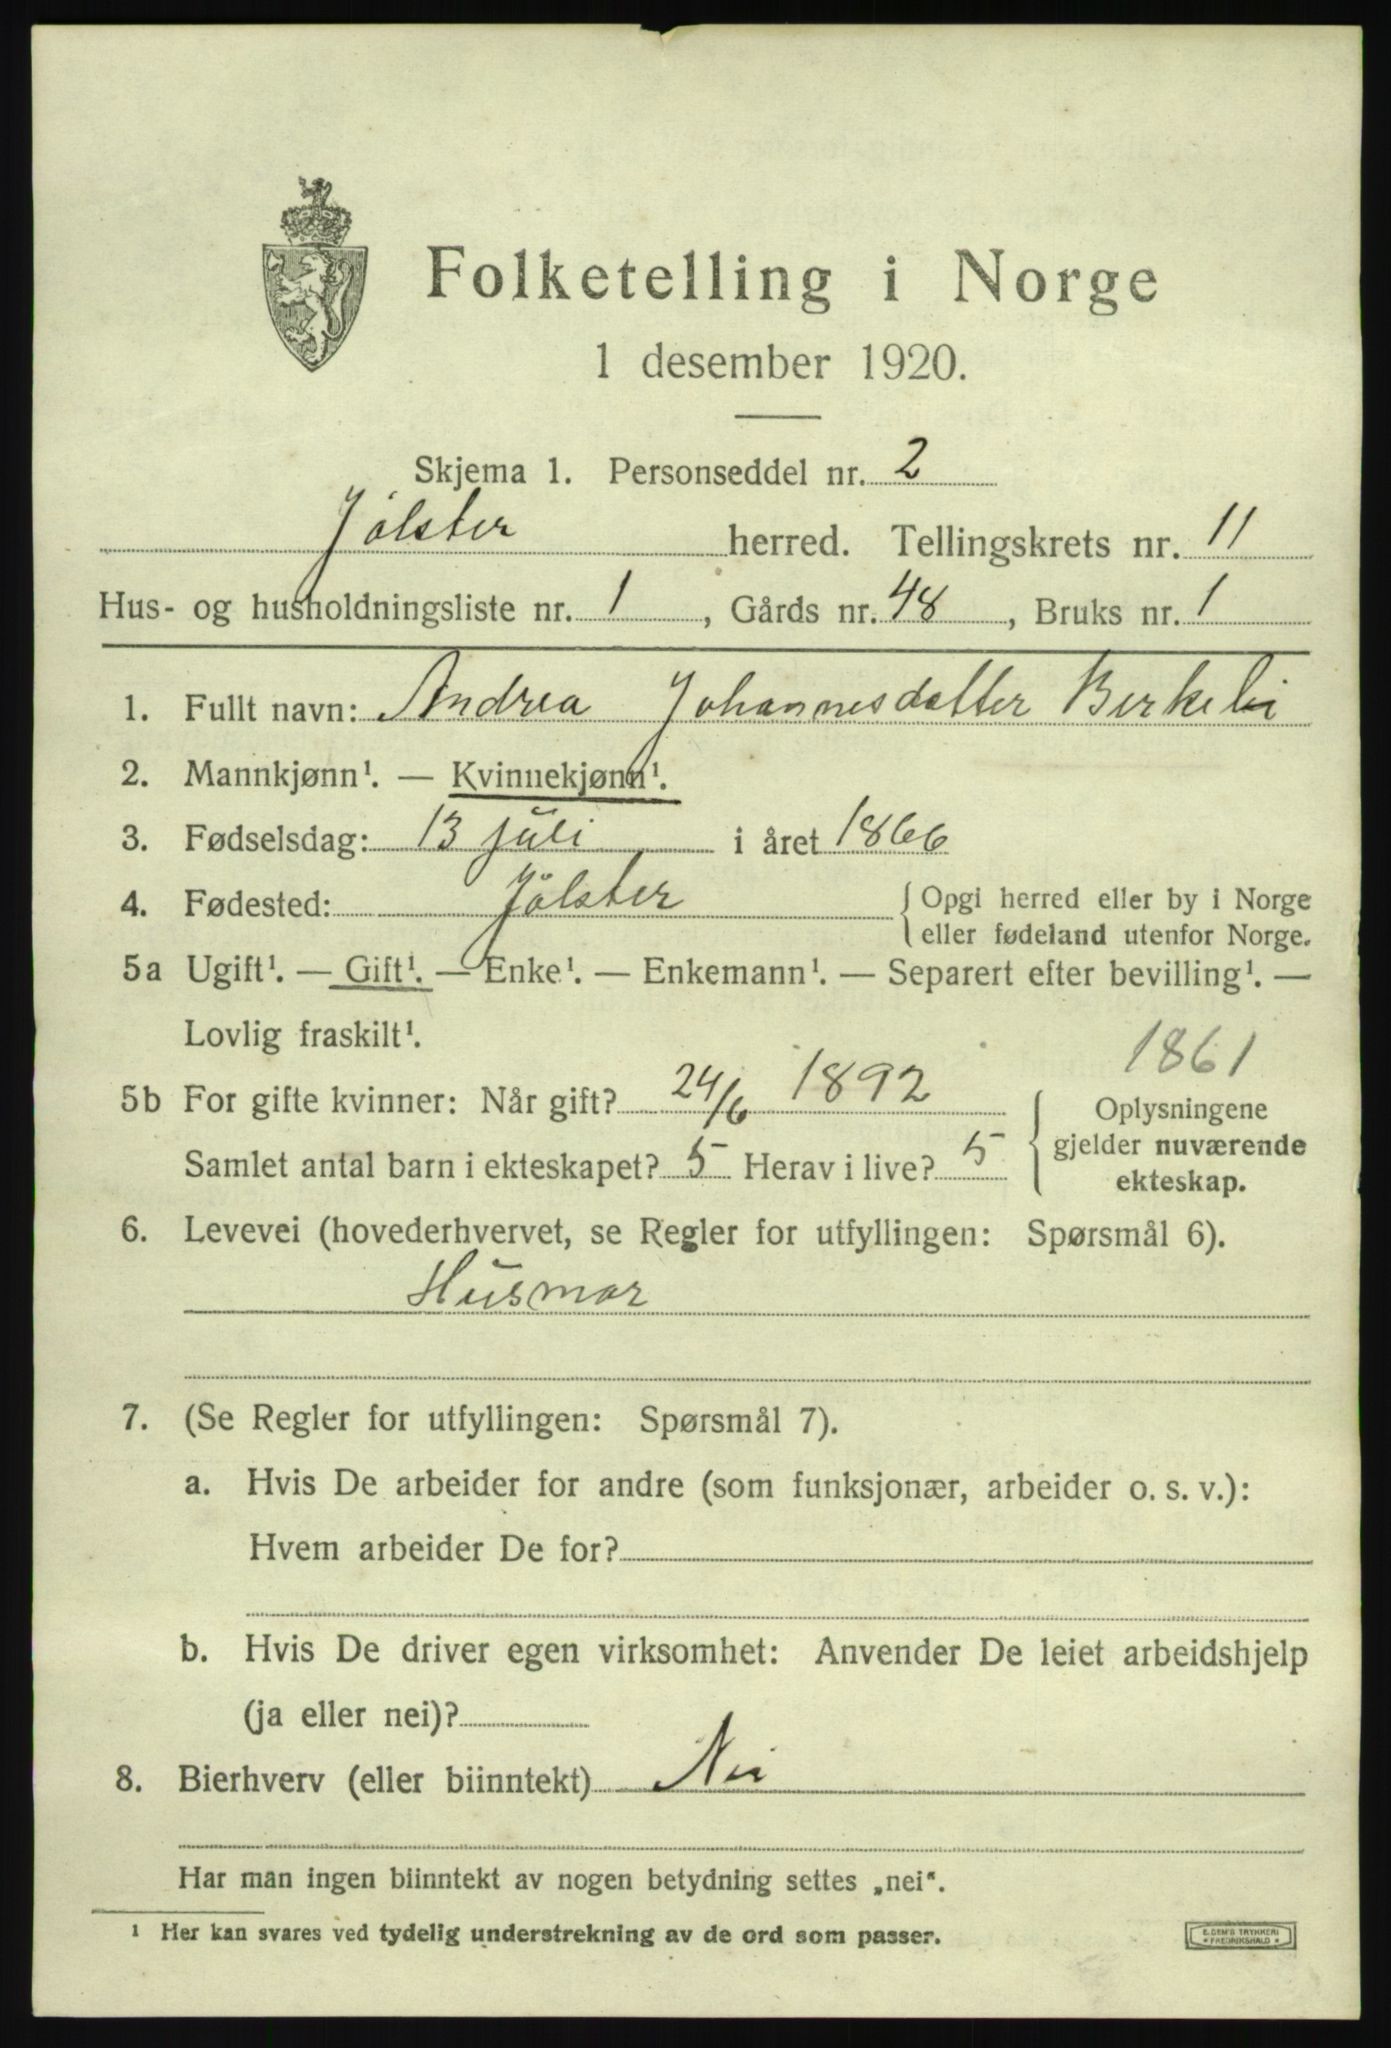 Folketelling i Norge
1 desember 1920.
Skjema 1. Personseddel nr. 2
Jølster herred. Tellingskrets nr. 11
Hus- og husholdningsliste nr. 1, Gårds nr. 48, Bruks nr. 1
1. Fullt navn: Andrea Johannesdatter Birkeli
2. Mannkjønn¹. — Kvinnekjønn¹.
3. Fødselsdag: 13 juli i året 1866
4. Fødested: Jølster { Opgi herred eller by i Norge
eller fødeland utenfor Norge.
5a Ugift¹. — Gift¹. — Enke¹. — Enkemann¹. — Separert efter bevilling¹. —
Lovlig fraskilt¹.
1861
5b For gifte kvinner: Når gift? 24/6 1892
Samlet antal barn i ekteskapet? 5 Herav i live? 5
Oplysningene
gjelder nuværende
ekteskap.
6. Levevei (hovederhvervet, se Regler for utfyllingen: Spørsmål 6).
Husmor
7. (Se Regler for utfyllingen: Spørsmål 7).
a. Hvis De arbeider for andre (som funksjonær, arbeider o. s. v.):
Hvem arbeider De for?
b. Hvis De driver egen virksomhet: Anvender De leiet arbeidshjelp
(ja eller nei)?
8. Bierhverv (eller biinntekt) Nei
Har man ingen biinntekt av nogen betydning settes „nei“.
¹ Her kan svares ved tydelig understrekning av de ord som passer.
E. SEM'S TRYKKERI
* FREDRIKSHALD *